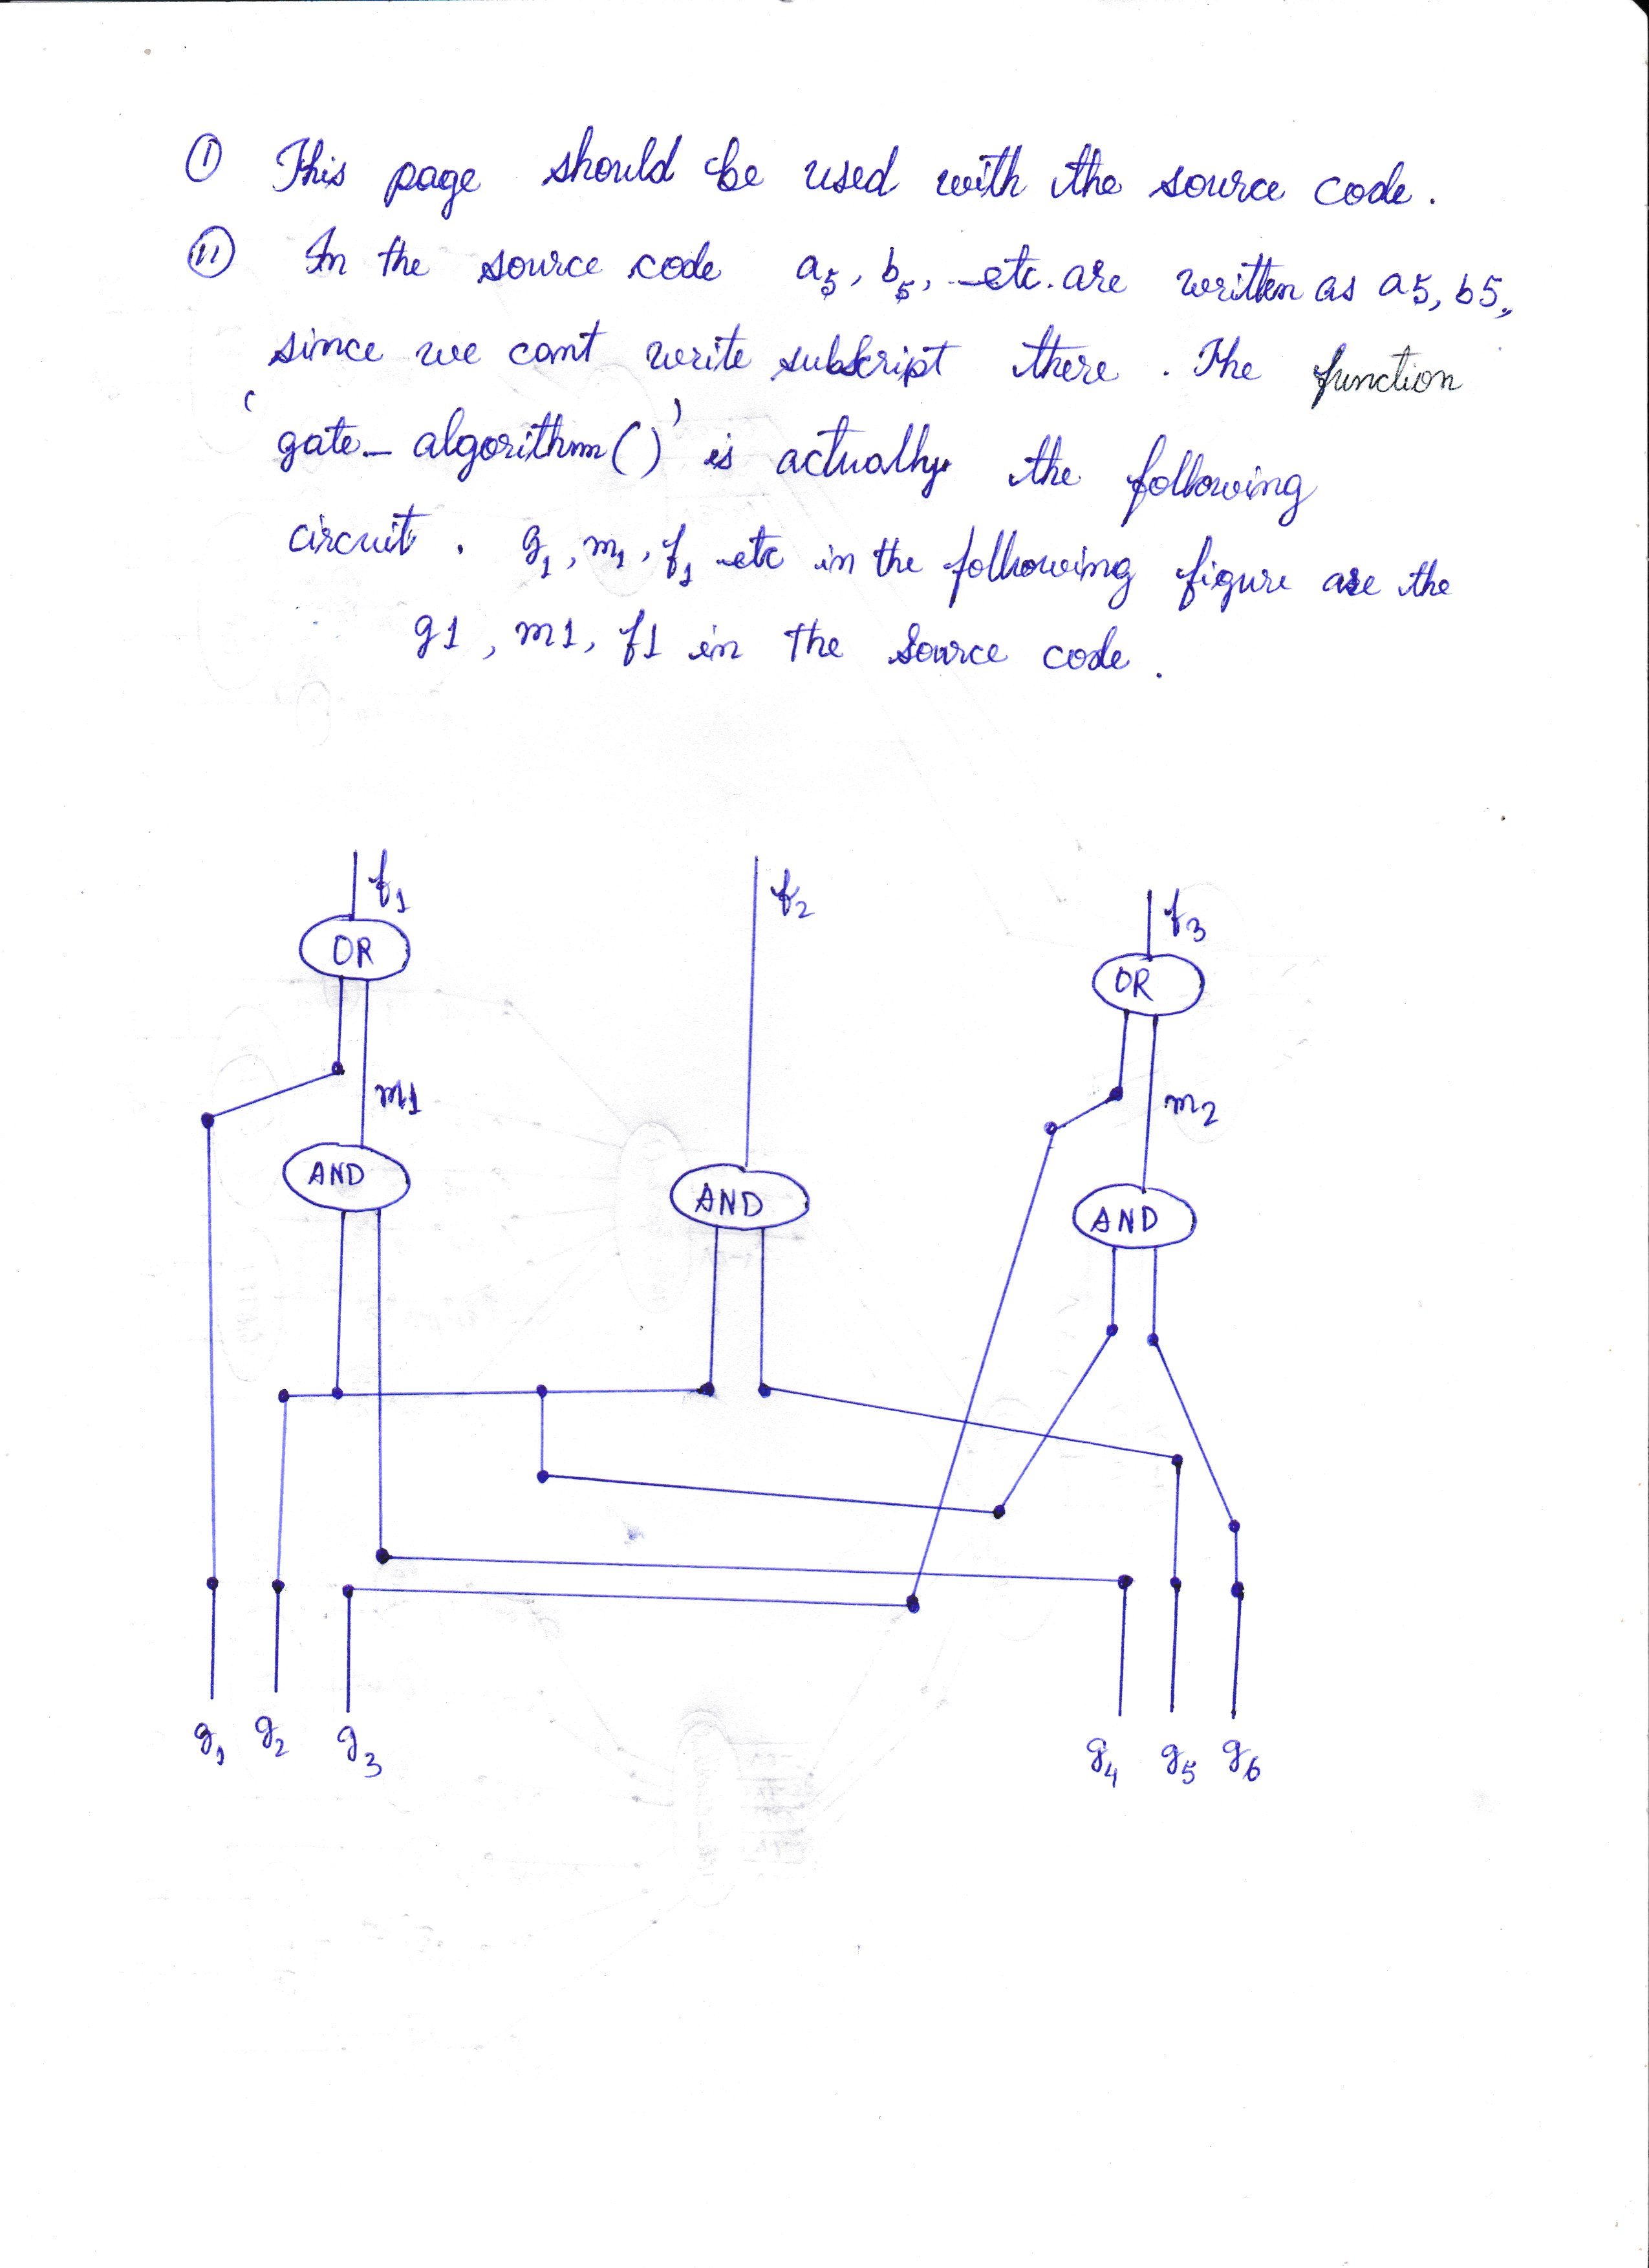 ① This page should be used with the source code.
⑪ In the source code a₅, b₅, etc. are written as a5, b5,
since we cant write subskript there. The function
'gate_algorithm()' is actually the following
circuit. g₁, m₁, f₁ etc in the following figure are the
g1, m1, f1 in the source code.
f₁
f₂
f₃
OR
OR
m1
m₂
AND
AND
AND
g₁ g₂ g₃ g₄ g₅ g₆